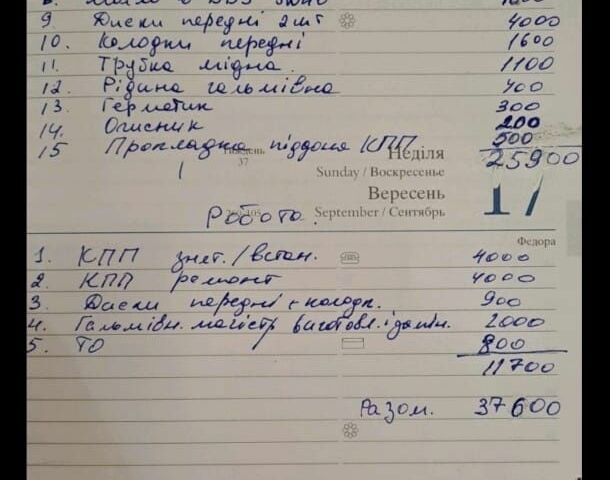 9. Диски передні 2 шт 4000
10. Колодки передні 1600
11. Трубка мідна 1100
12. Рідина гальмівна 400
13. Герметик 300
14. Очисник 200
15 Прокладка піддона КПП 500
25900
Тиждень 37
Неділя
Sunday / Воскресенье
Вересень
September / Сентябрь
17
Робота.
Федора
1. КПП знят./встан. 4000
2. КПП ремонт 4000
3. Диски передні + колодк. 900
4. Гальмівн. магістр виготовл. і замін. 2000
5. ТО 800
11700
Разом. 37600